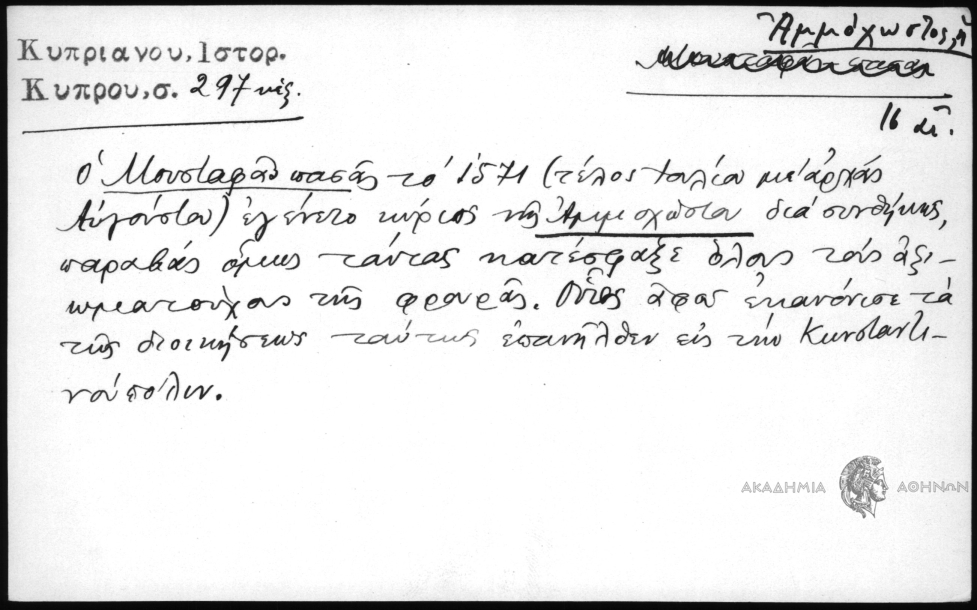 Κυπριανου, Ιστορ.
Κυπρου, σ. 297 κἑξ.
Ἀμμόχωστος, ἡ
16 αἰ.
Ὁ Μουσταφᾶ πασᾶς τό 1571 (τέλος Ἰουλίου μέ ἀρχάς
Αὐγούστου) ἐγένετο κύριος τῆς Ἀμμοχώστου διά συνθήκης,
παραβάς ὅμως ταύτας κατέσφαξε ὅλους τούς ἀξι-
ωματούχους τῆς φρουρᾶς. Οὗτος ἀφοῦ ἐκανόνισε τά
τῆς διοικήσεως ταύτης ἐπανῆλθεν εἰς τήν Κωνσταντι-
νούπολιν.
ΑΚΑΔΗΜΙΑ ΑΘΗΝΩΝ